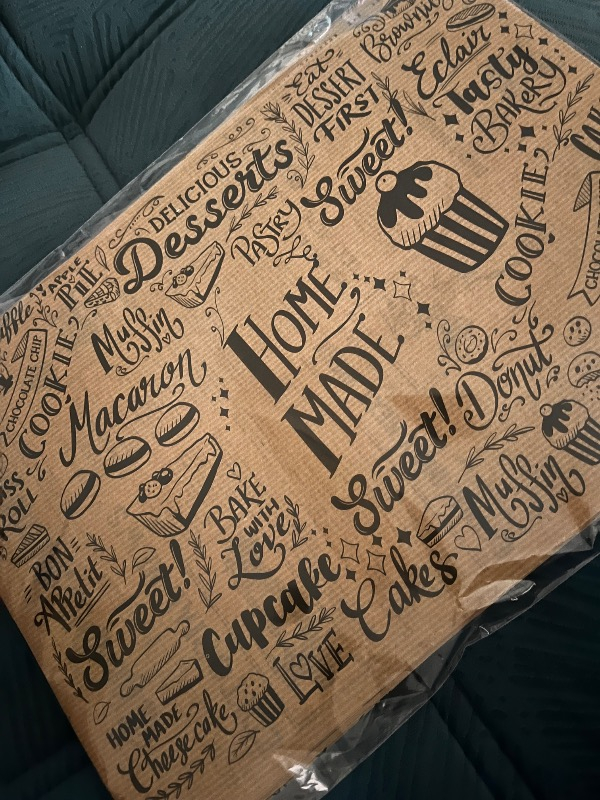 Brownie
Eclair
Tasty
BAKERY
Eat
DESSERT
FIRST
Sweet!
DELICIOUS
Desserts
PASTRY
COOKIE
APPLE
PIE
Muffin
HOME
MADE
CHOCOLATE CHIP
COOKIE
Macaron
Sweet!
Donut
Muffin
ROLL
BAKE
WITH
Love
BON
Appetit
Sweet!
Cupcake
Cakes
LOVE
HOME
MADE
Cheesecake